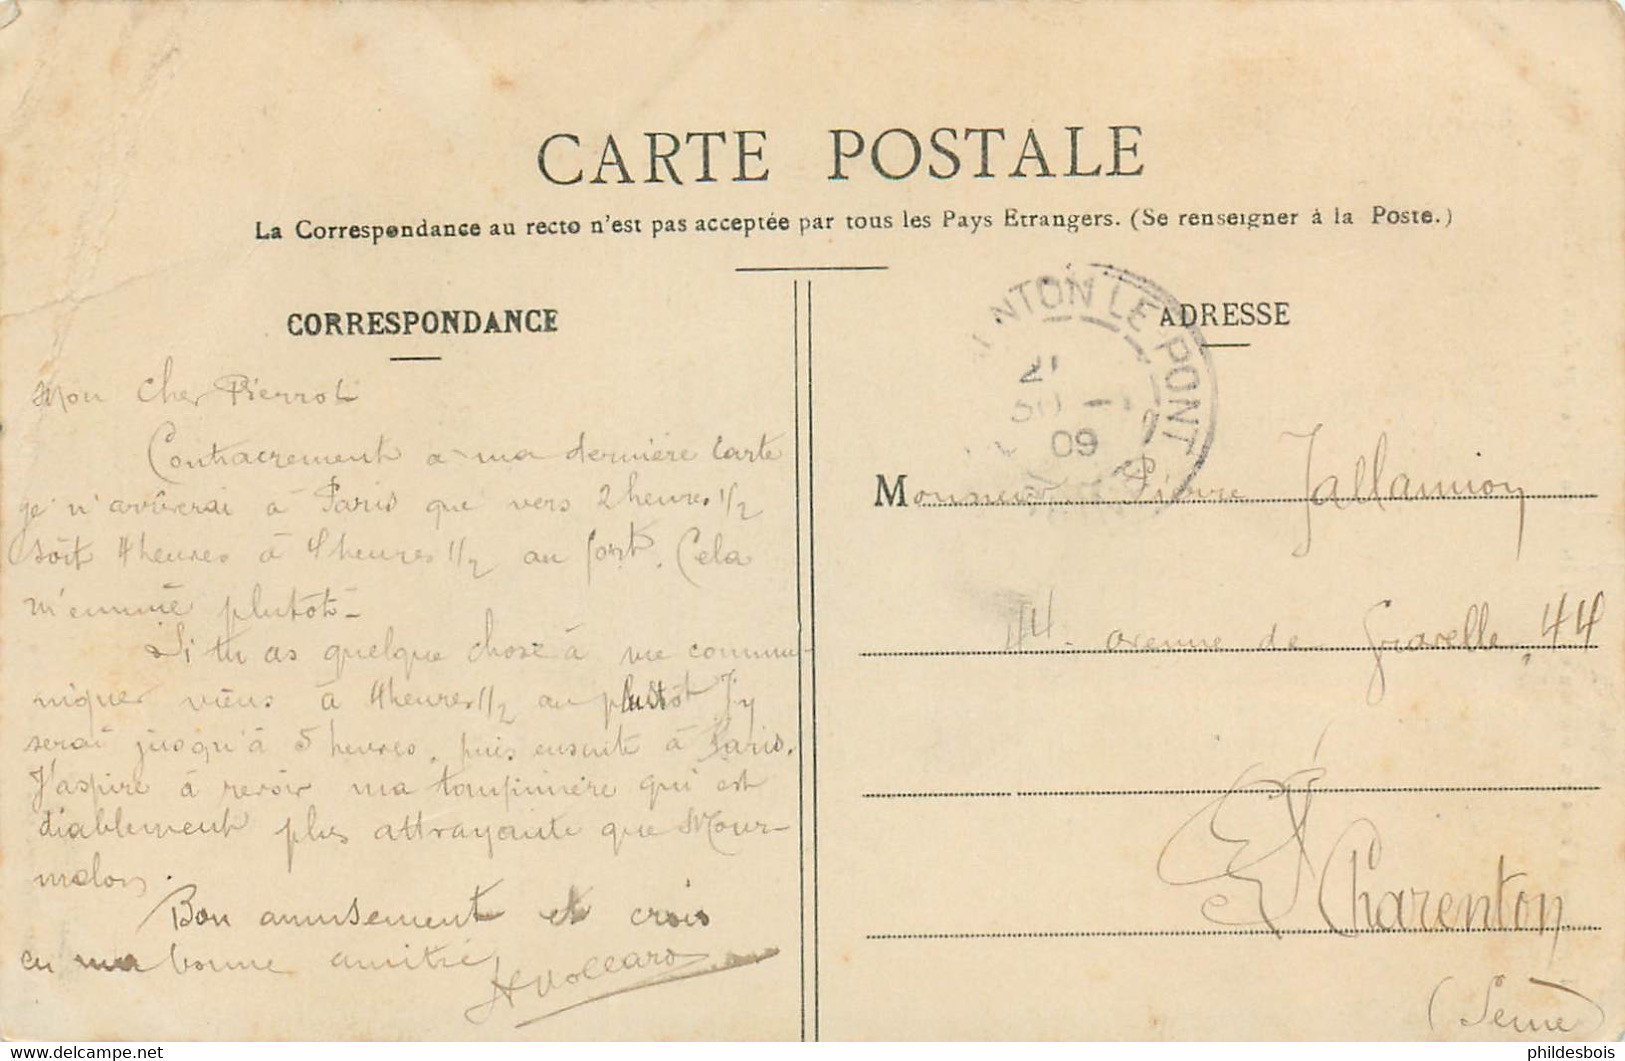 CARTE POSTALE
La Correspondance au recto n'est pas acceptée par tous les Pays Etrangers. (Se renseigner à la Poste.)
CORRESPONDANCE
Mon Cher Pierrot
Contrairement a ma dernière carte
je n'arriverai à Paris que vers 2 heures 1/2
soit 4 heures à 4 heures 1/2 au fort. Cela
m'ennuie plutôt-
Si tu as quelque chose à me commu-
niquer viens à 4 heures 1/2 au plutôt J'y
serai jusqu'à 5 heures, puis ensuite à Paris.
J'aspire à revoir ma taupinière qui est
diablement plus attrayante que Mour-
melon.
Bon amusement et crois
en ma bonne amitié
NTON LE PONT
09
ADRESSE
Monsieur Pierre Jallamion
44 - avenue de Gravelle, 44
Charenton
(Seine)
phildesbois